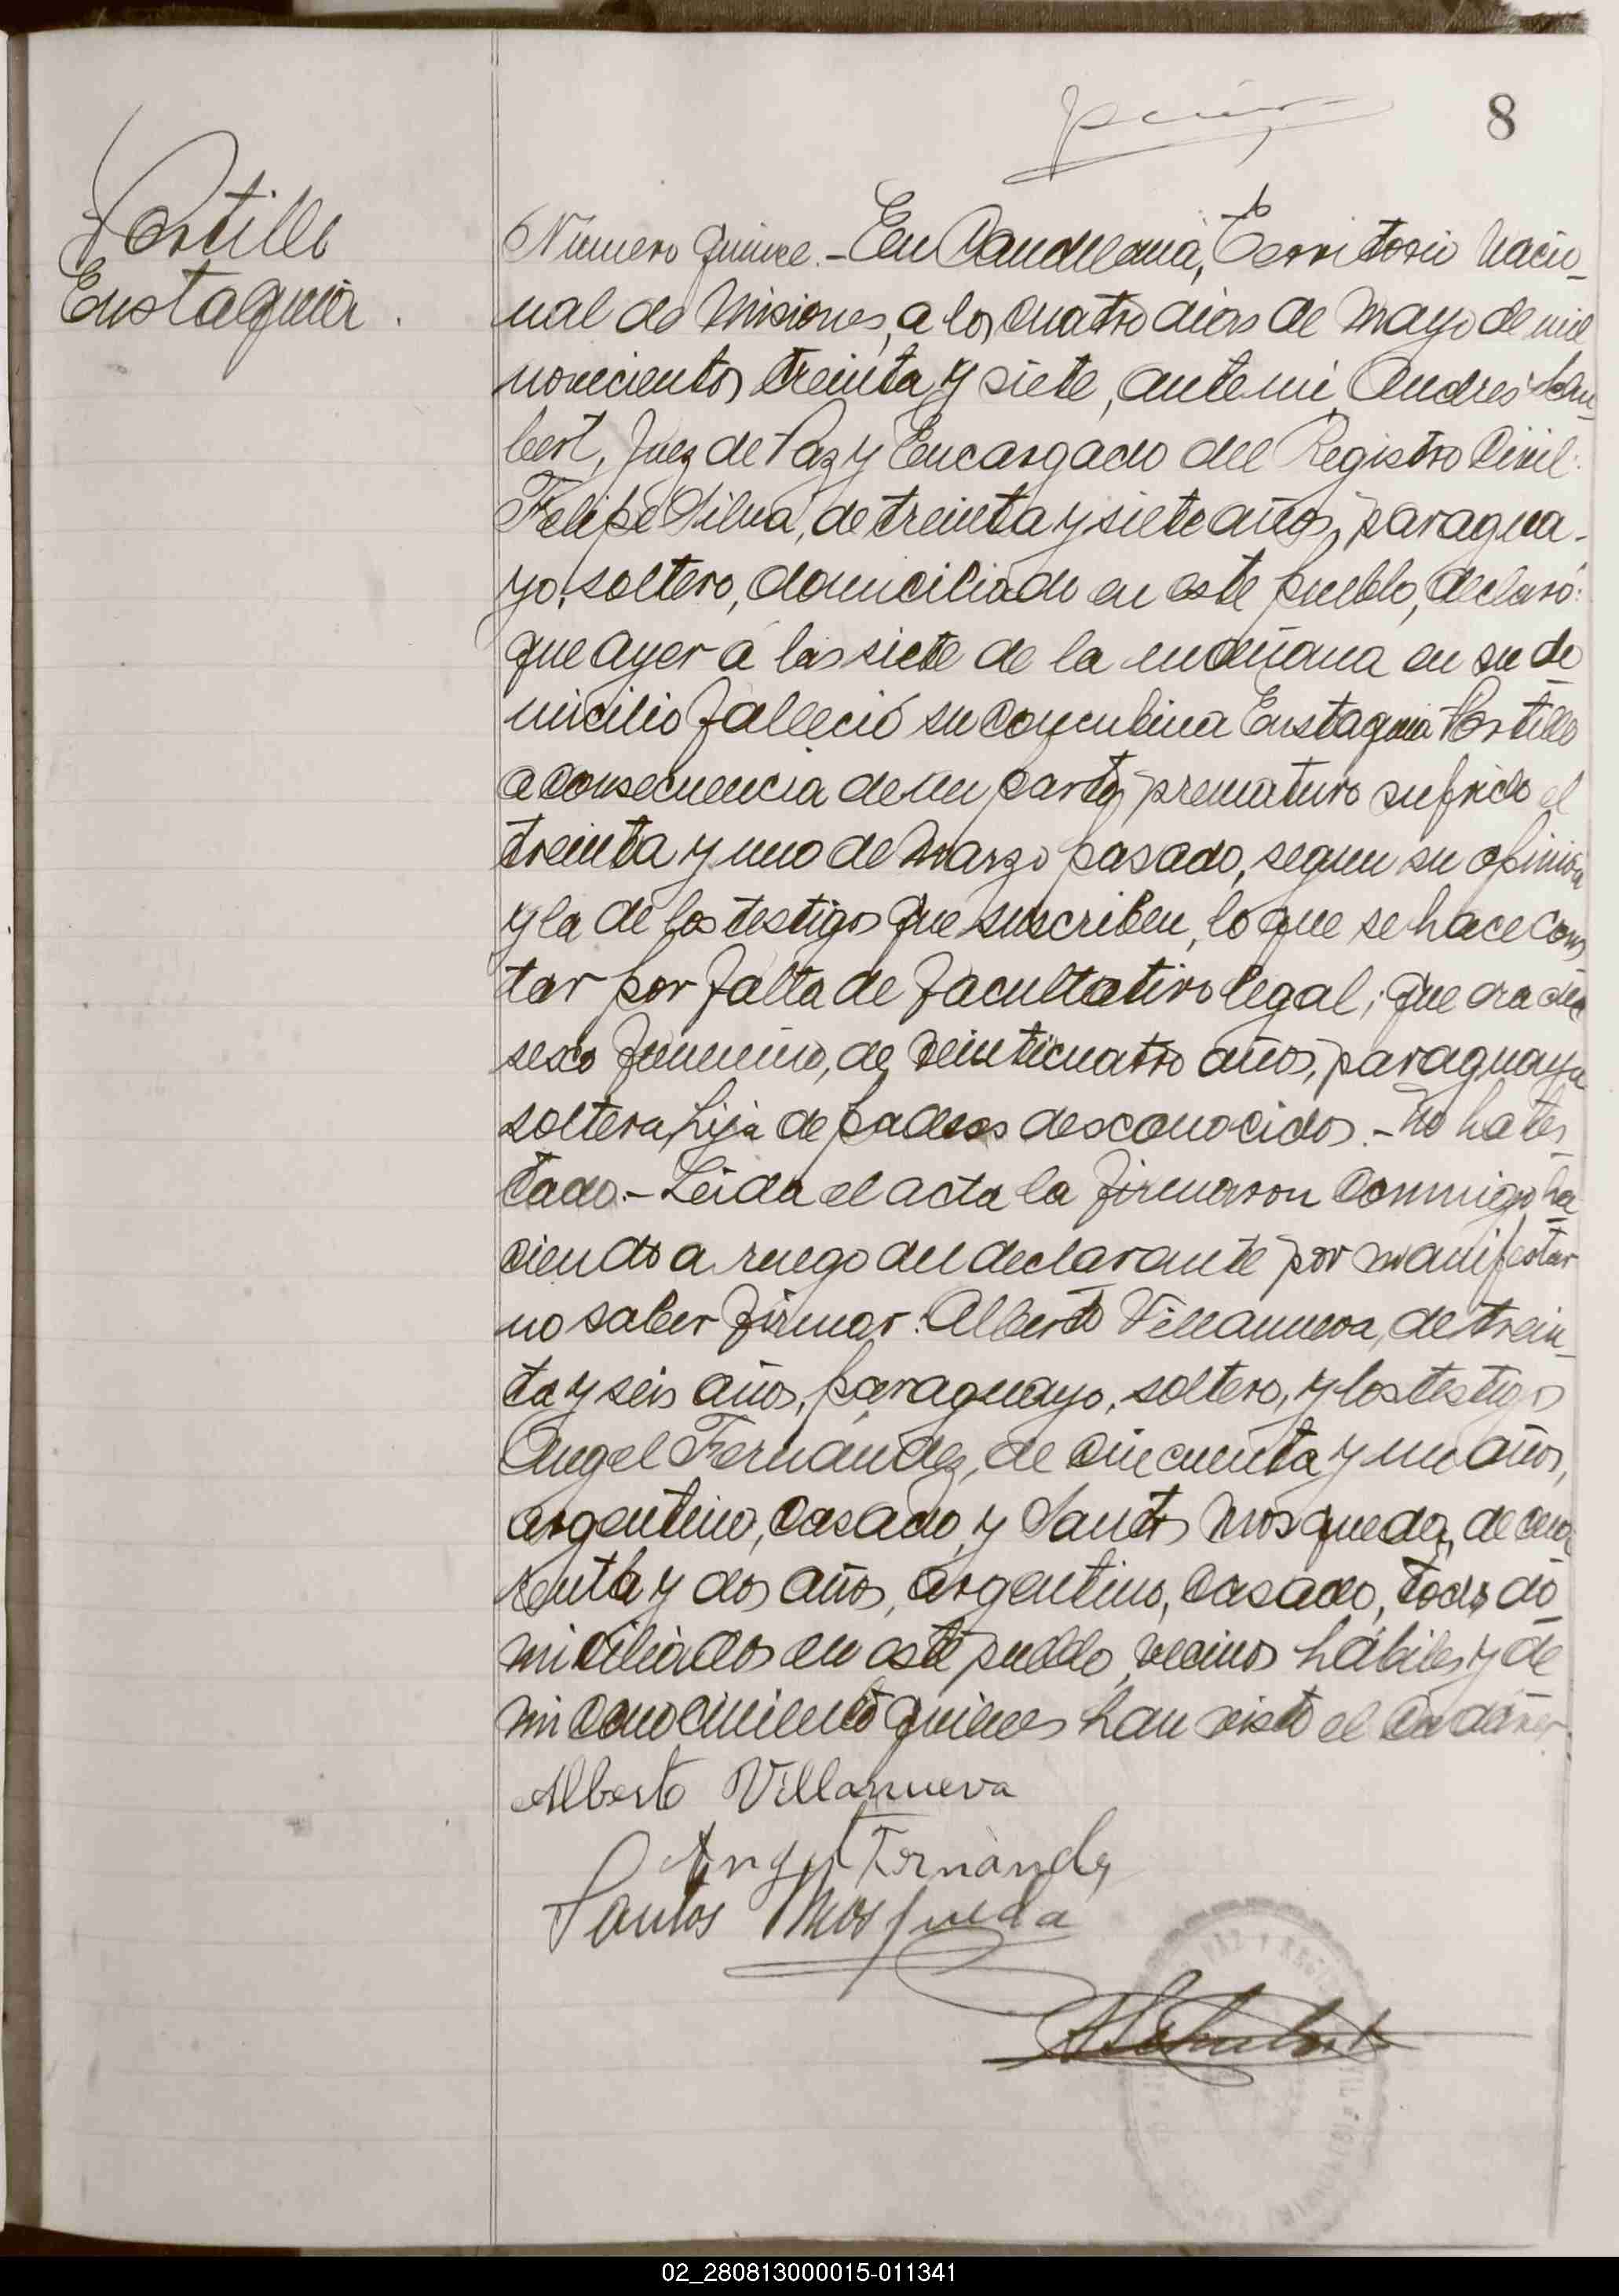 8
Portillo
Eustaquia.
Número quince.- En Candelaria, Territorio Nacio-
nal de Misiones, a los cuatro dias de Mayo de mil
novecientos treinta y siete, ante mi Andres Schu-
bert, Juez de Paz y Encargado del Registro Civil:
Felipe Silva, de treinta y siete años, paragua-
yo, soltero, domiciliado en este pueblo, declaró:
que ayer a las siete de la mañana en su do
micilio falleció su concubina Eustaquia Portillo
a consecuencia de un parto prematuro sufrido el
treinta y uno de Marzo pasado, segun su opinion
y la de los testigos que suscriben, lo que se hace cons
tar por falta de facultativo legal; que era del
sexo femenino, de veinticuatro años, paraguaya
soltera, hija de padres desconocidos.- No ha tes
tado.- Leida el acta la firmaron conmigo ha
ciendo a ruego del declarante por manifestar
no saber firmar: Alberto Villanueva, de trein-
ta y seis años, paraguayo, soltero, y los testigos
Angel Fernández, de cincuenta y un años,
argentino, casado, y Santos Mosqueda, de cua
renta y dos años, argentino, casado, todos do
miciliados en este pueblo, vecinos hábiles y de
mi conocimiento quienes han visto el cadáver.
Alberto Villanueva
Angel Fernandez
Santos Mosqueda
ASchubert
02_280813000015-011341